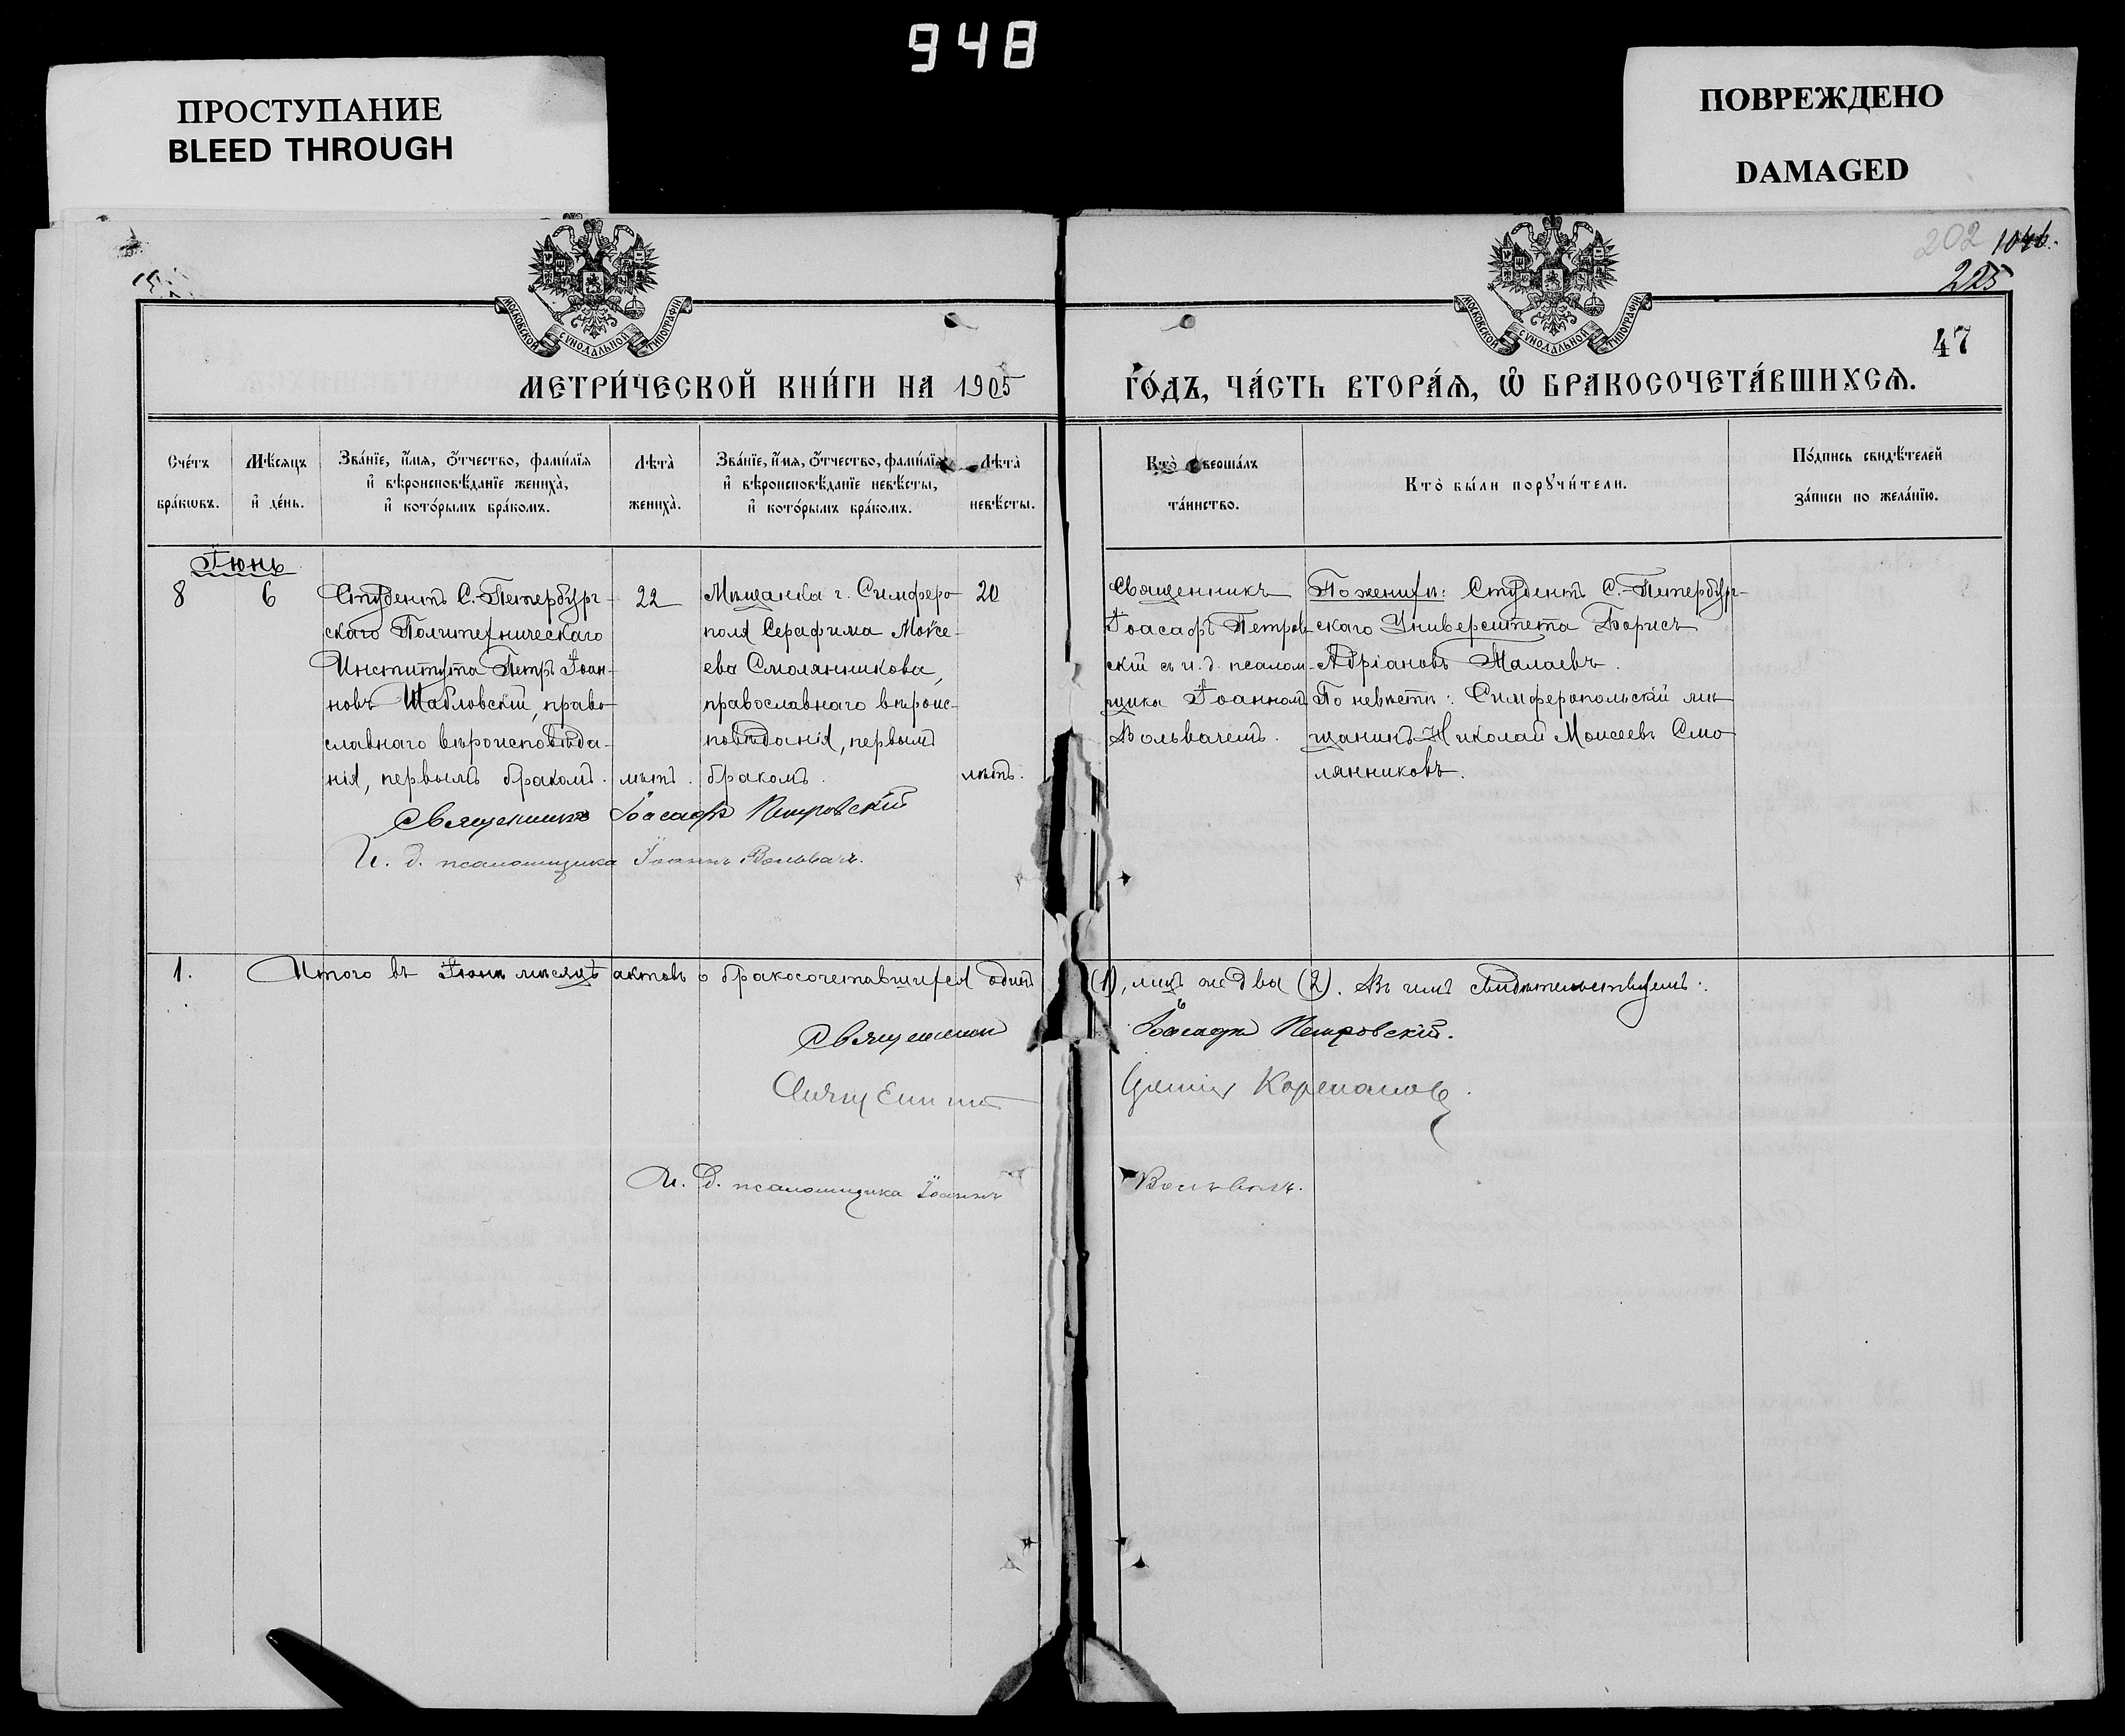 948
ПРОСТУПАНИЕ
BLEED THROUGH
ПОВРЕЖДЕНО
DAMAGED
202 1046.
225
47
МОСКОВСКОЙ СУНОДАЛЬНОЙ ТИПОГРАФІИ
МОСКОВСКОЙ СУНОДАЛЬНОЙ ТИПОГРАФІИ
МЕТРИ́ЧЕСКОЙ КНИ́ГИ НА 1905 ГО́ДЪ, ЧА́СТЬ ВТОРА́Ѧ, Ѽ БРАКОСОЧЕТА́ВШИХСѦ.
Сче́тъ
бра́кѡвъ.
Мѣ́сѧцъ
и҆ де́нь.
Зва́нїе, и҆́мѧ, ѻ҆́тчество, фами́лїѧ
и҆ вѣроисповѣ́данїе жениха̀,
и҆ кото́рымъ бра́комъ.
Лѣта̀
жениха̀.
Зва́нїе, и҆́мѧ, ѻ҆́тчество, фами́лїѧ
и҆ вѣроисповѣ́данїе невѣ́сты,
и҆ кото́рымъ бра́комъ.
Лѣта̀
невѣ́сты.
Кто̀ соверша́лъ
та́инство.
Кто̀ бы́ли порꙋчи́тели.
По́дпись свидѣ́телей
за́писи по жела́нїю.
Іюнь
8
6
Студентъ С.-Петербург-
скаго Политехническаго
Института Петръ Іоан-
новъ Шабловскій, право-
славнаго вѣроисповѣда-
нія, первымъ бракомъ.
22
лѣтъ.
Мѣщанка г. Симферо-
поля Серафима Моисе-
ева Смолянникова,
православнаго вѣроис-
повѣданія, первымъ
бракомъ.
20
лѣтъ.
Священникъ
Іоасафъ Петров-
скій съ и. д. псалом-
щика Іоанномъ
Вольвачемъ.
По женихѣ: Студентъ С.-Петербург-
скаго Университета Борисъ
Адріановъ Малаевъ.
По невѣстѣ: Симферопольскій мѣ-
щанинъ Николай Моисеевъ Смо-
лянниковъ.
Священникъ Іоасафъ Петровскій
И. д. псаломщика Іоаннъ Вольвачъ.
1. Итого въ Іюнѣ мѣсяцѣ актовъ о бракосочетавшихся одинъ (1), лицъ же два (2). Въ чемъ свидѣтельствуемъ:
Священникъ Іоасафъ Петровскій.
Священникъ
И. д. псаломщика Іоаннъ Вольвачъ.